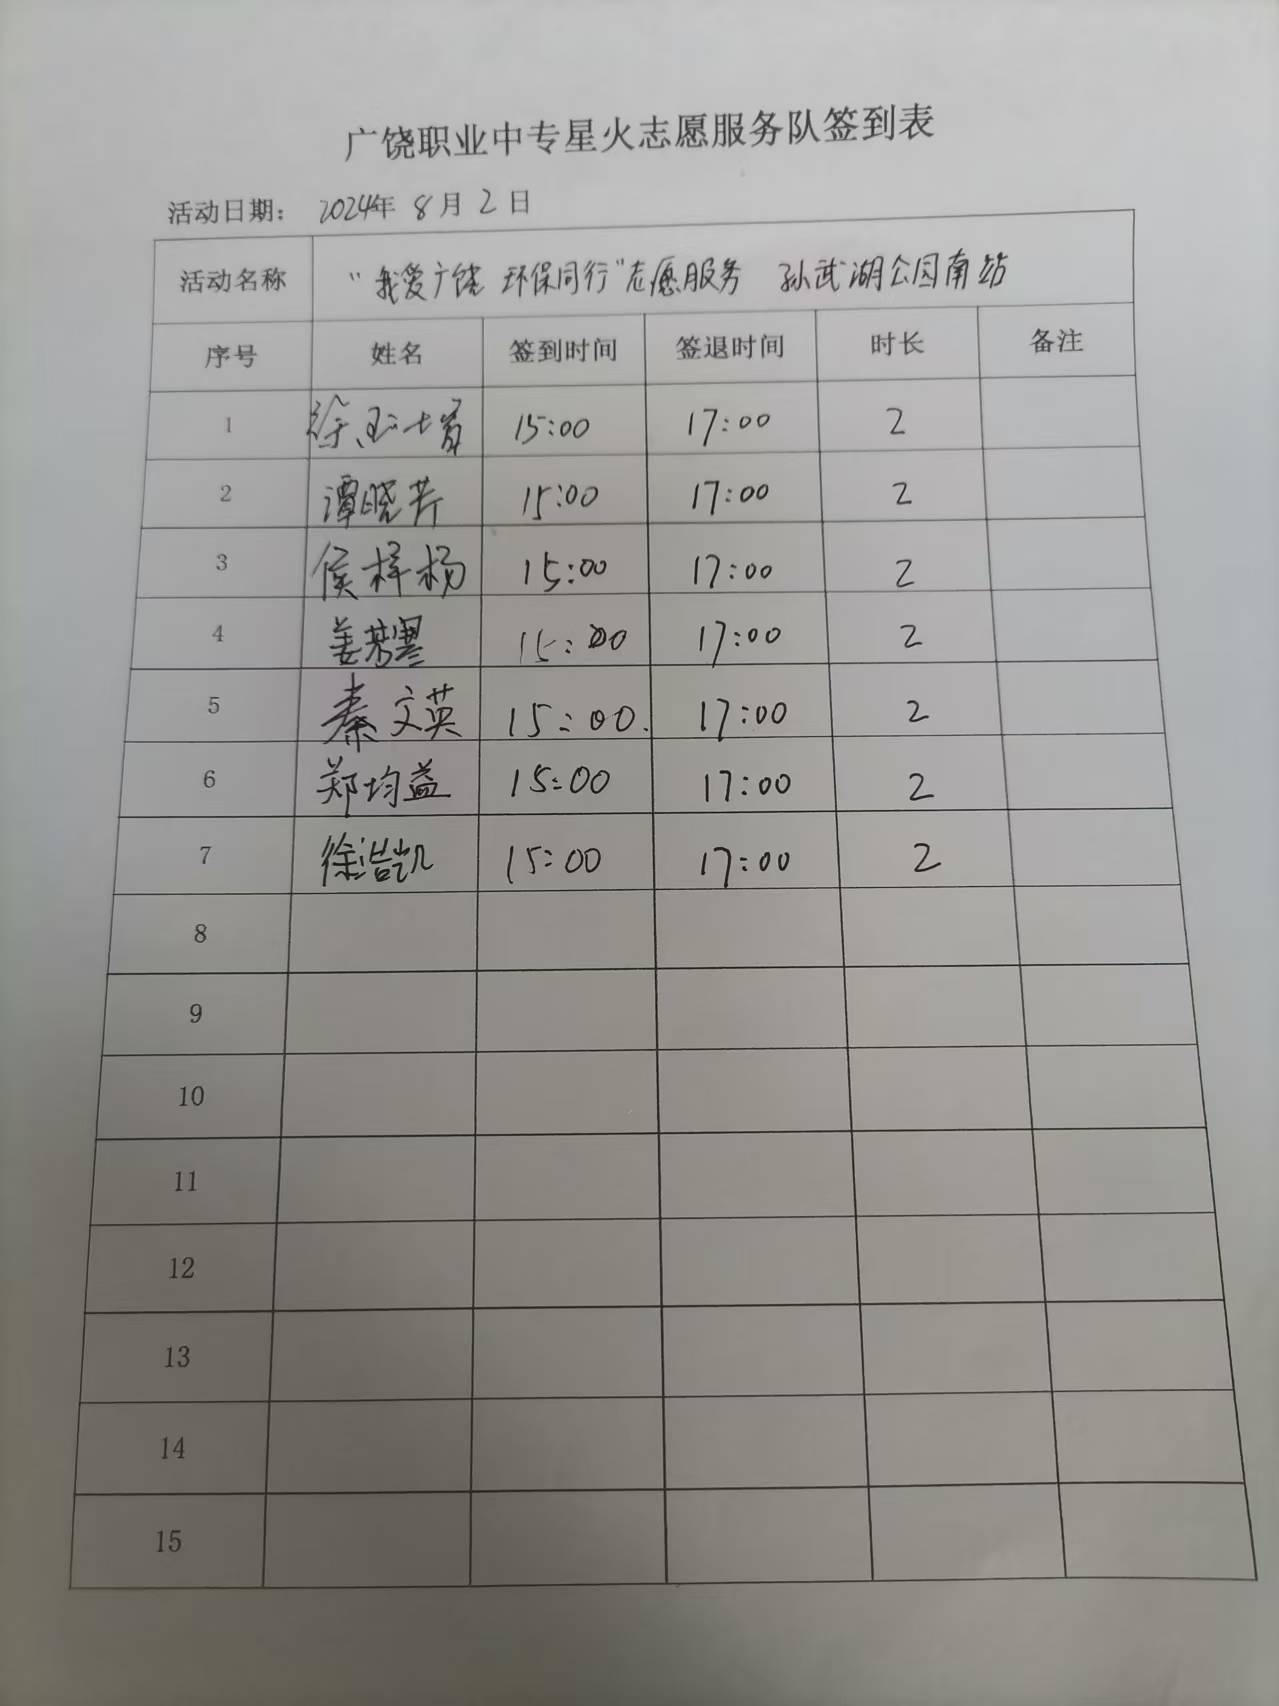 广饶职业中专星火志愿服务队签到表
活动日期： 2024年 8月 2日
活动名称 “我爱广饶 环保同行”志愿服务 孙武湖公园南站
序号 姓名 签到时间 签退时间 时长 备注
1 徐 15:00 17:00 2
2 谭晓芹 15:00 17:00 2
3 侯梓杨 15:00 17:00 2
4 姜 15:00 17:00 2
5 秦文英 15:00. 17:00 2
6 郑均益 15:00 17:00 2
7 徐浩凯 15:00 17:00 2
8
9
10
11
12
13
14
15